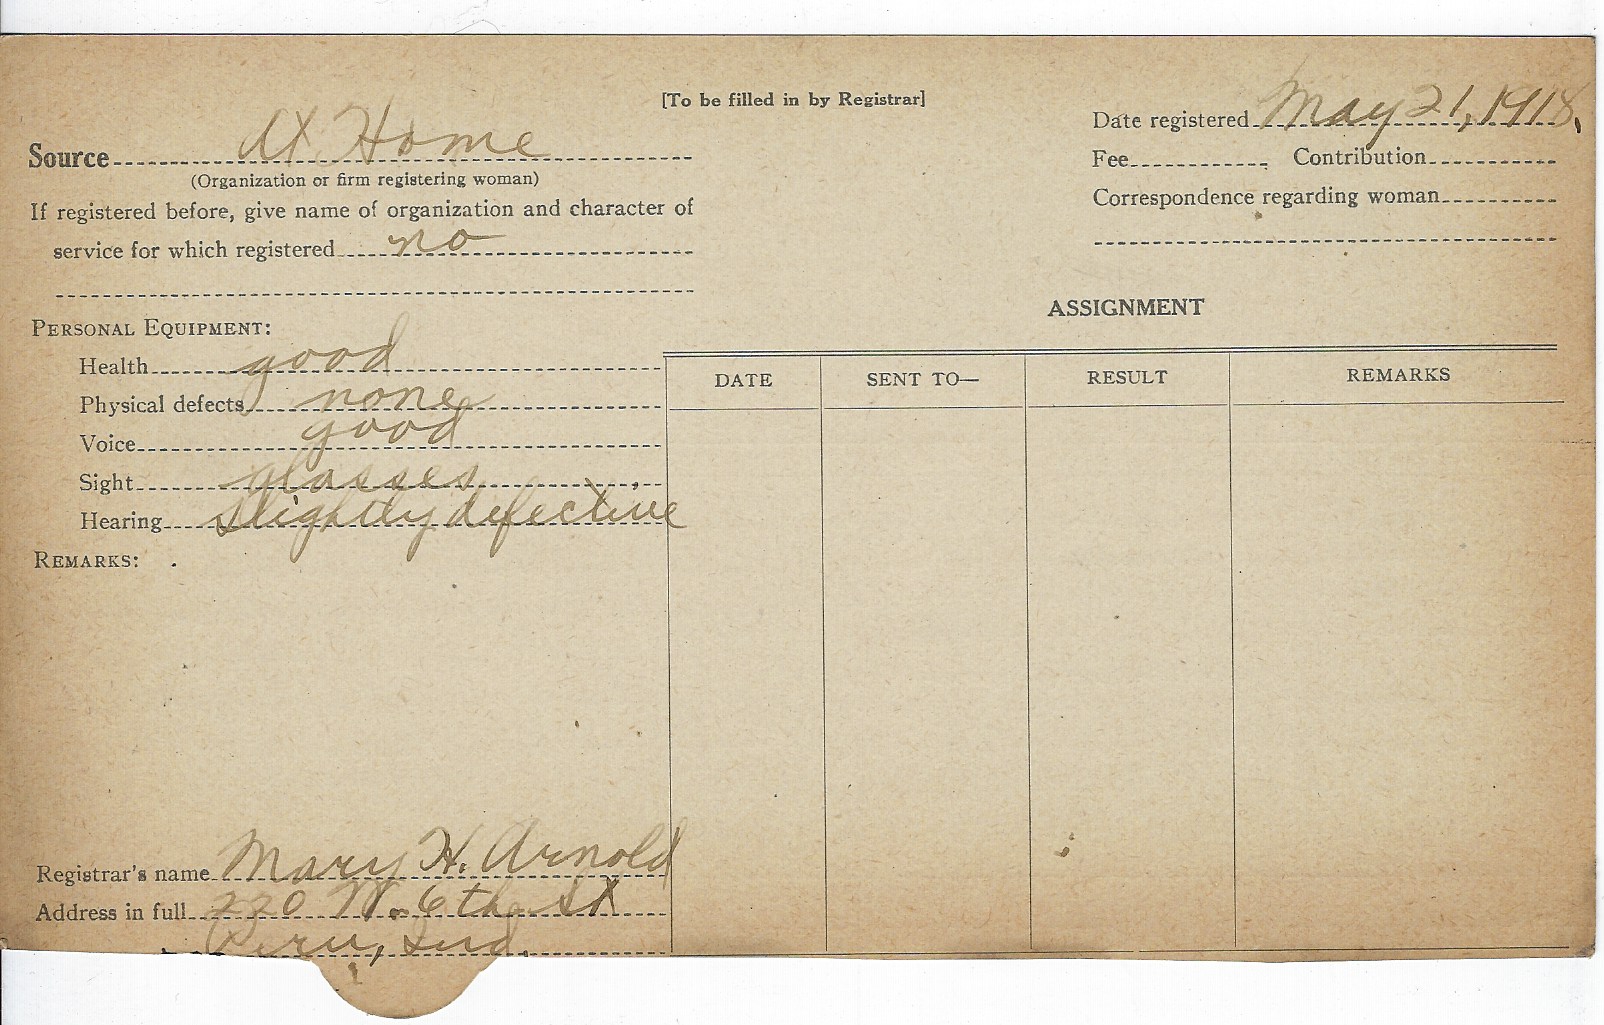 [To be filled in by Registrar]
Source At Home
(Organization or firm registering woman)
If registered before, give name of organization and character of
service for which registered no
Date registered May 21, 1918.
Fee Contribution
Correspondence regarding woman
PERSONAL EQUIPMENT:
Health good
Physical defects none
Voice good
Sight glasses
Hearing slightly defective
REMARKS:
ASSIGNMENT
DATE SENT TO— RESULT REMARKS
Registrar's name Mary H. Arnold
Address in full 220 W. 6th St
Peru, Ind.